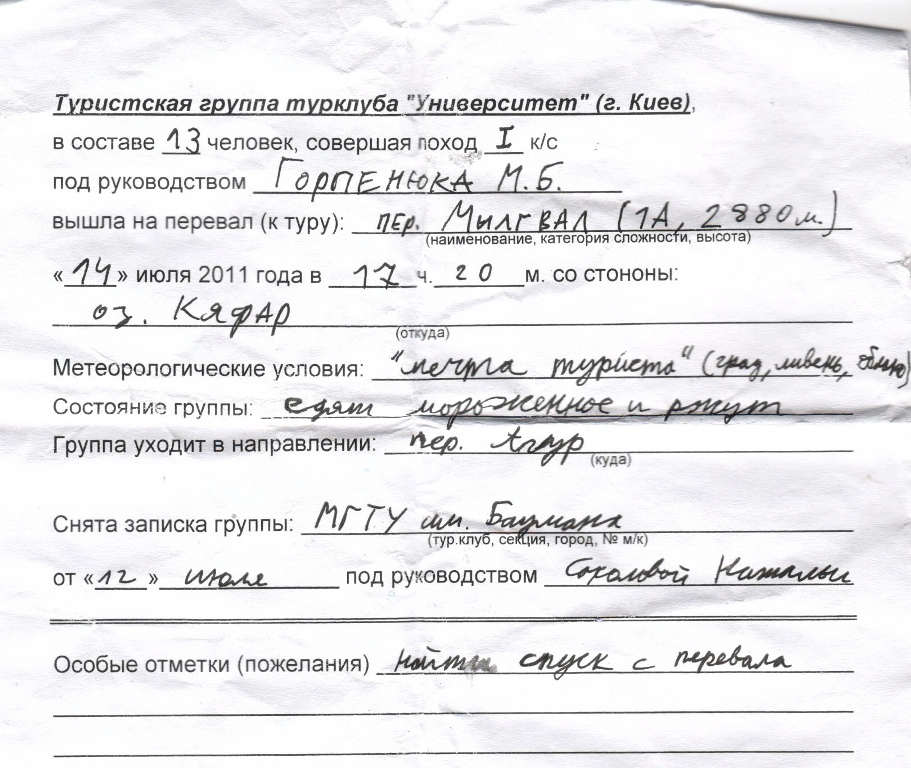 Туристская группа турклуба "Университет" (г. Киев),
в составе 13 человек, совершая поход I к/с
под руководством ГОРПЕНЮКА М.Б.
вышла на перевал (к туру): ПЕР. МЫЛГВАЛ (1А, 2880 м.)
(наименование, категория сложности, высота)
«14» июля 2011 года в 17 ч. 20 м. со стононы:
оз. КЯФАР
(откуда)
Метеорологические условия: "мечта туриста" (град, ливень,
Состояние группы: едят мороженное и ржут
Группа уходит в направлении: пер. Агур
(куда)
Снята записка группы: МГТУ им. Баумана
(тур.клуб, секция, город, № м/к)
от «12» июля под руководством Соколовой Натальи
Особые отметки (пожелания) найти спуск с перевала